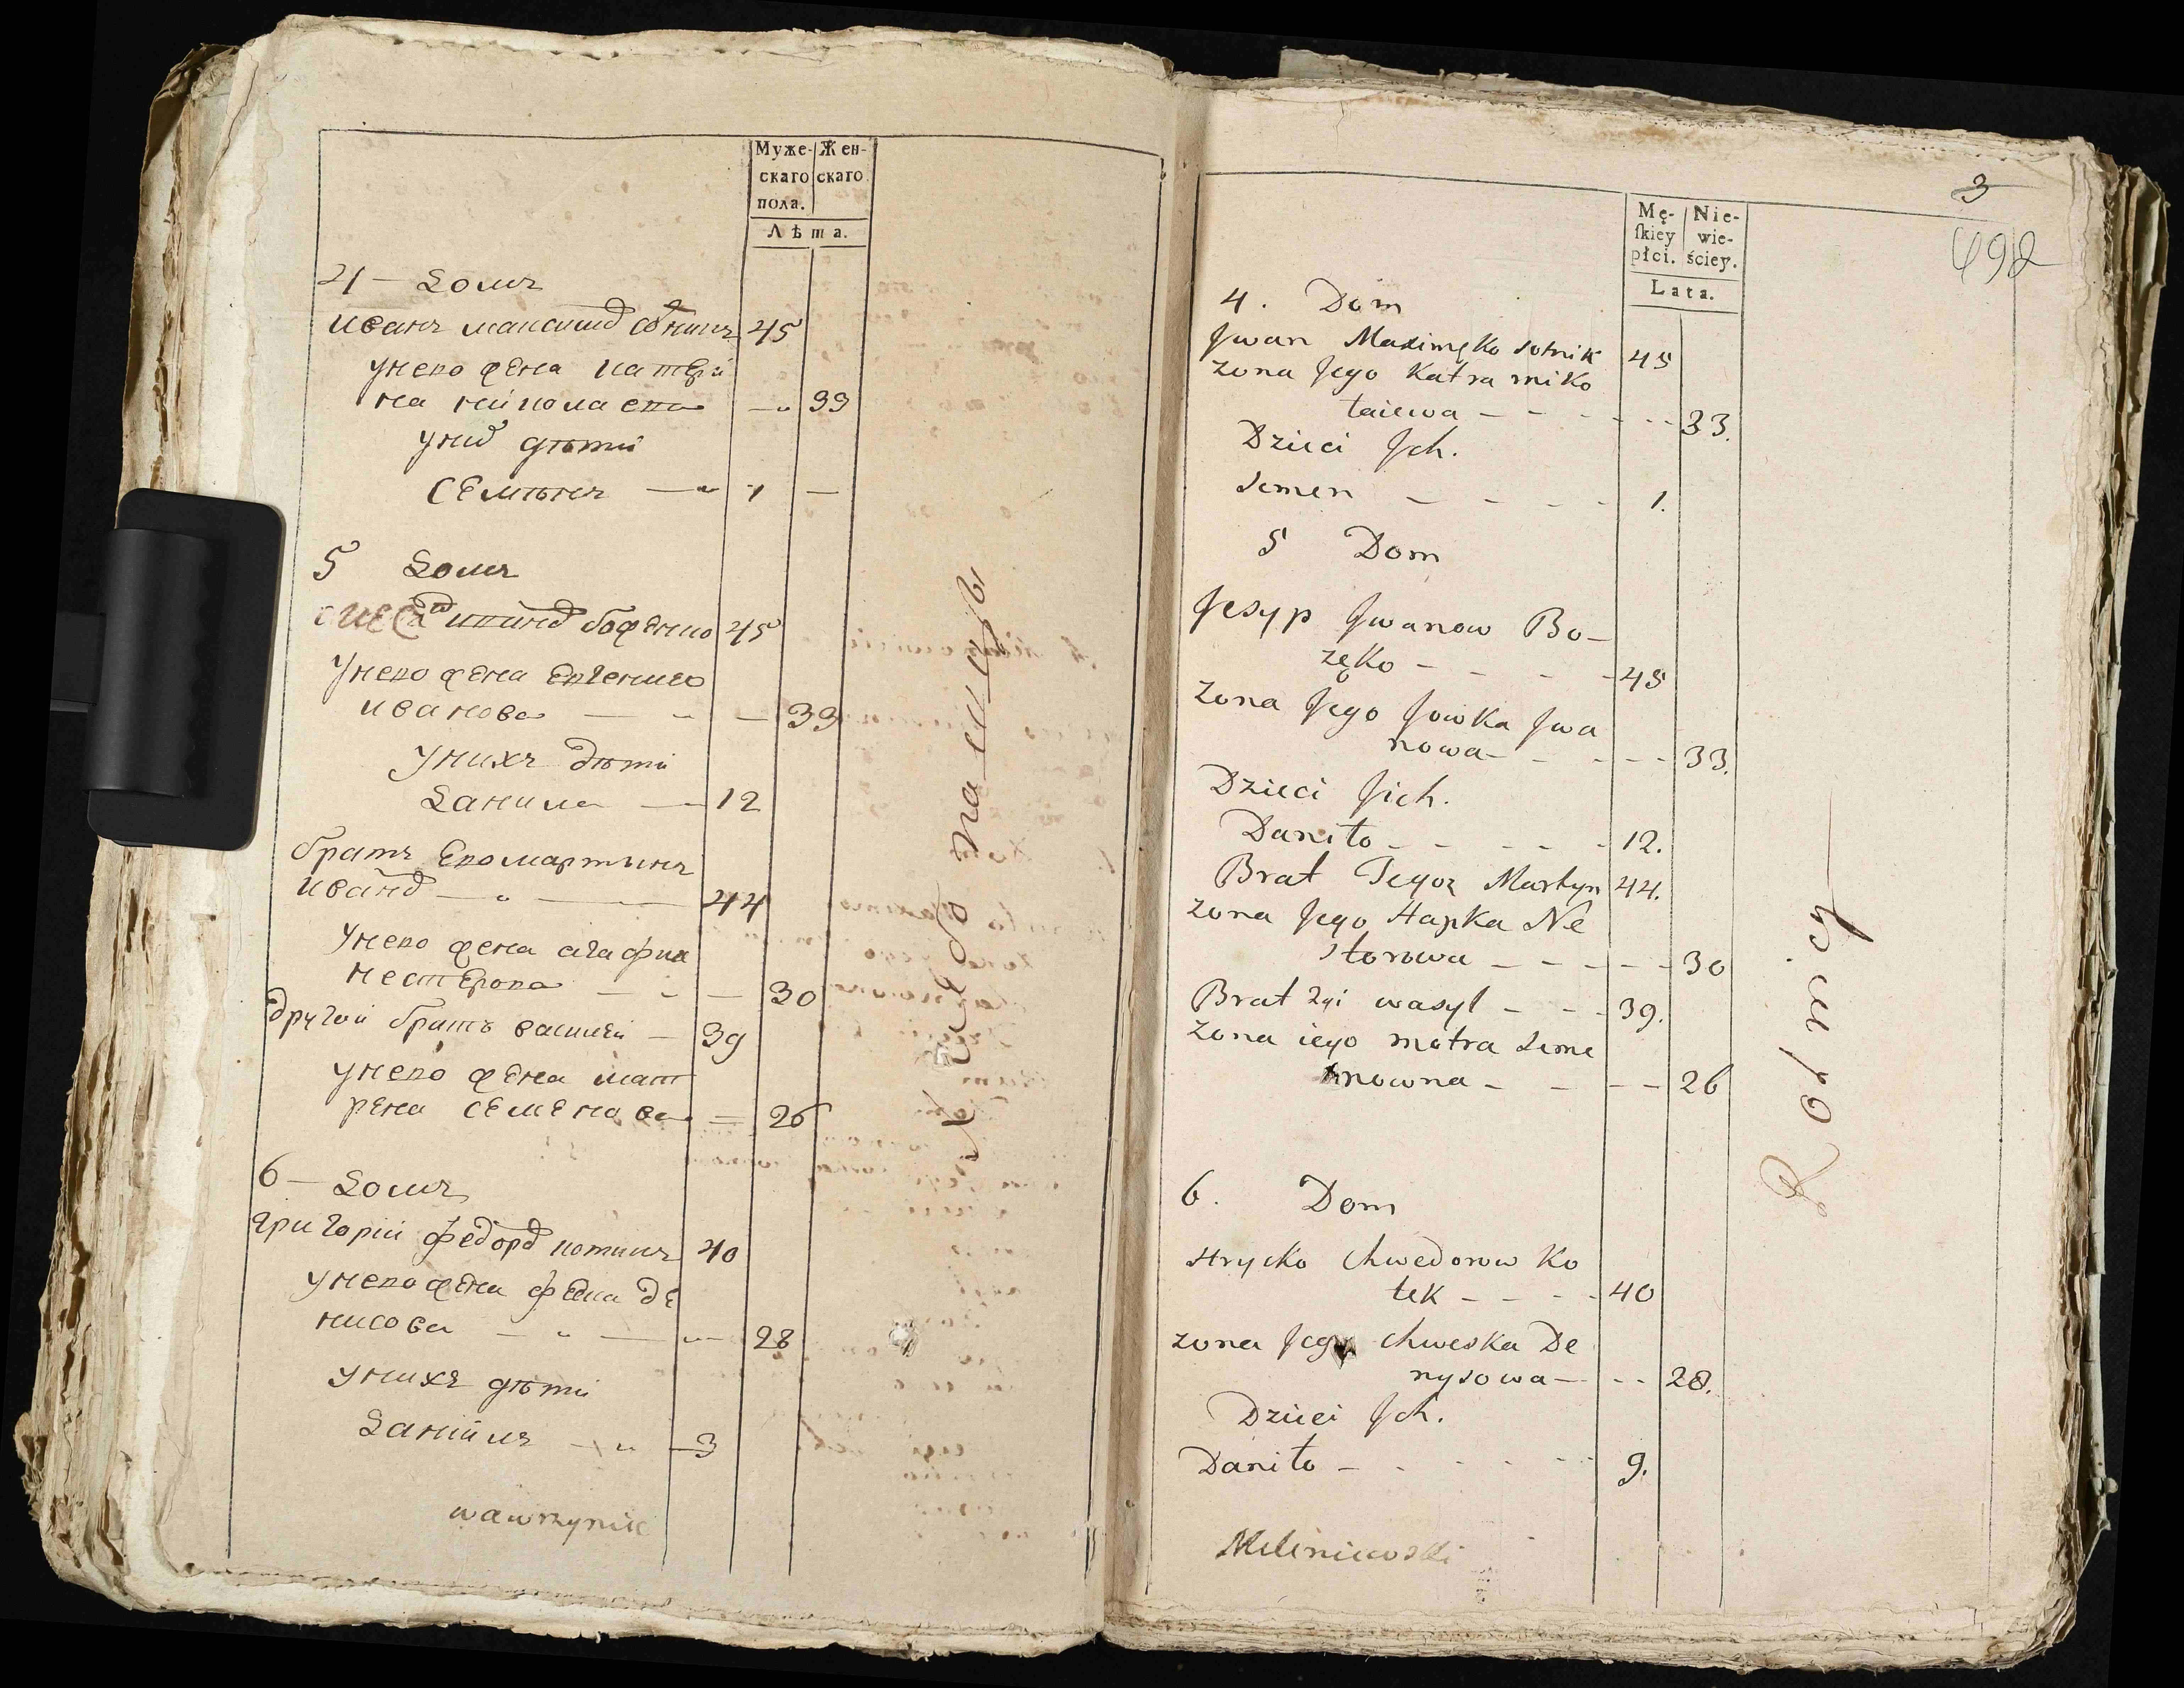 Муже- Жен-
скаго скаго
пола.
Лѣта.
4 — Домъ
Иванъ Максимов Сотникъ 45
У него жена Катери
на Николаева — 33
У них дѣти
Семѣнъ — 1 —
5 Домъ
Иванов Боженко 45
У него жена Евгения
Иванова — 33
У нихъ дѣти
Данила — 12
братъ Его Мартинъ
Иванов — 44
У него жена агафия
Нестерова — 30
другой братъ василей — 39
У него жена мат
рена Семенова — 26
6 — Домъ
григорий федоров котикъ 40
У него жена де
нисова — 28
У нихъ дѣти
Данило — 3
wawrzyniec
3
492
Mę- Nie-
ſkiey wie-
płci. ściey.
Lata.
4. Dom
Jwan Maximęko sotnik 45
zona Jego Katra miko
łaiewa — 33.
Dzieci Jch.
Semen — 1.
5 Dom
Jesyp Jwanow Bo-
zęko — 45
zona Jego Jowka Jwa
nowa — 33.
Dzieci Jich.
Daniło — 12.
Brat Tegoz Martyn 44.
zona Jego Hapka Ne
storowa — 30
Brat 2gi wasyl — 39.
zona iego motra Seme
nowna — 26
6. Dom
Hrycko Chwedorow Ko
tek — 40
zona Jego Chweska De
nysowa — 28.
Dzieci Jch.
Daniło — 9.